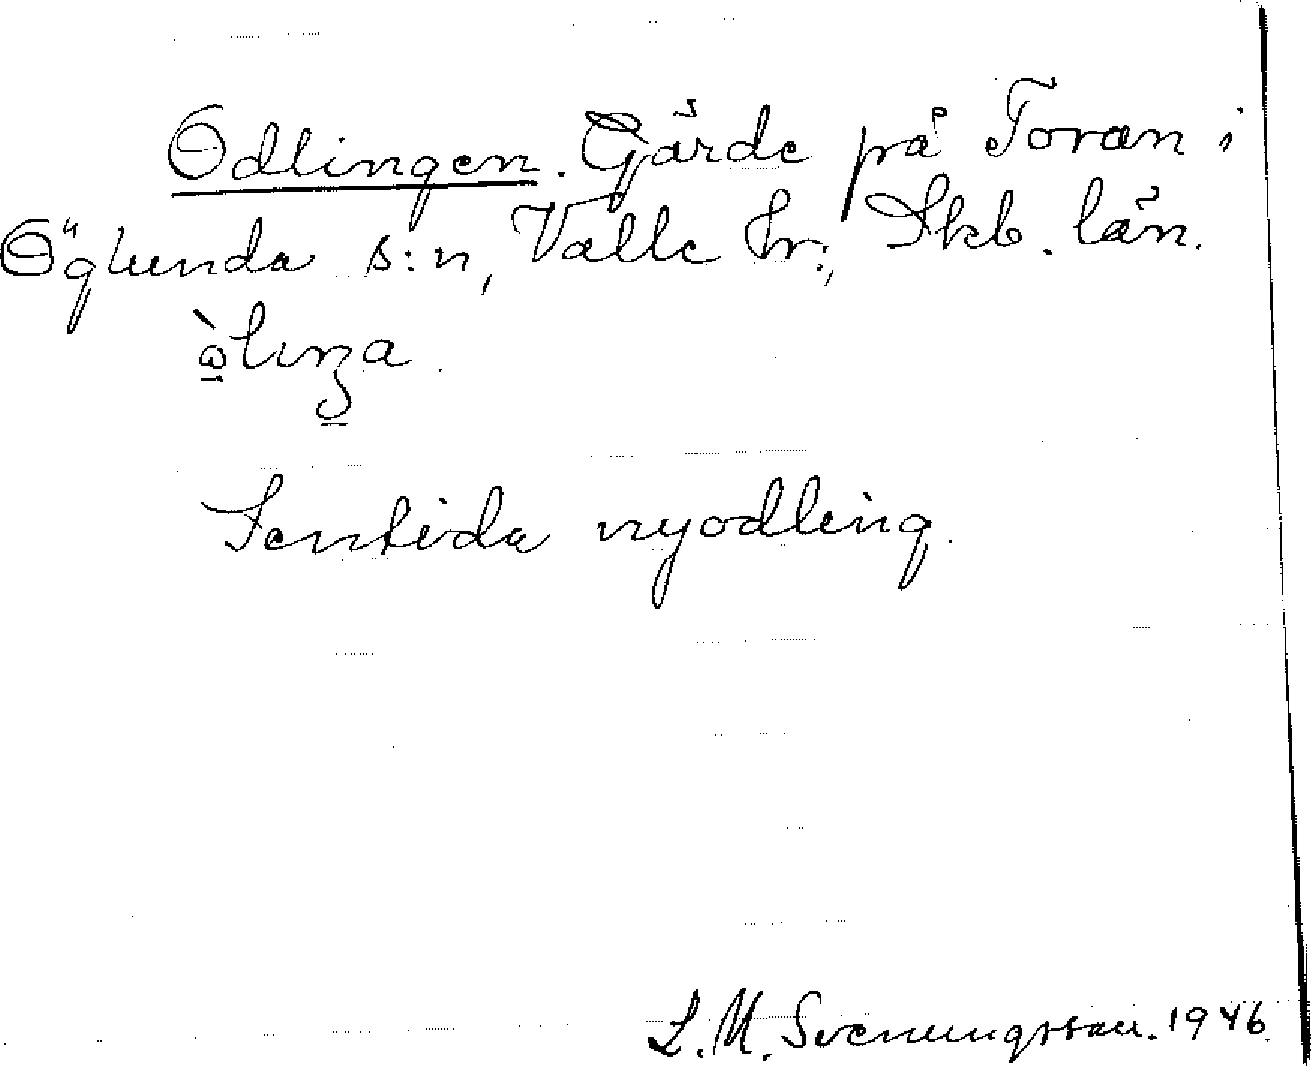 Odlingen. Gärde på Toran i
Öglunda s:n, Valle hr., Skb. län.
Sentida nyodling.
S. M. Svenungsson. 1946